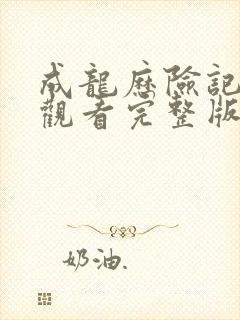 成龍歷險記
觀看完整版
奶油.